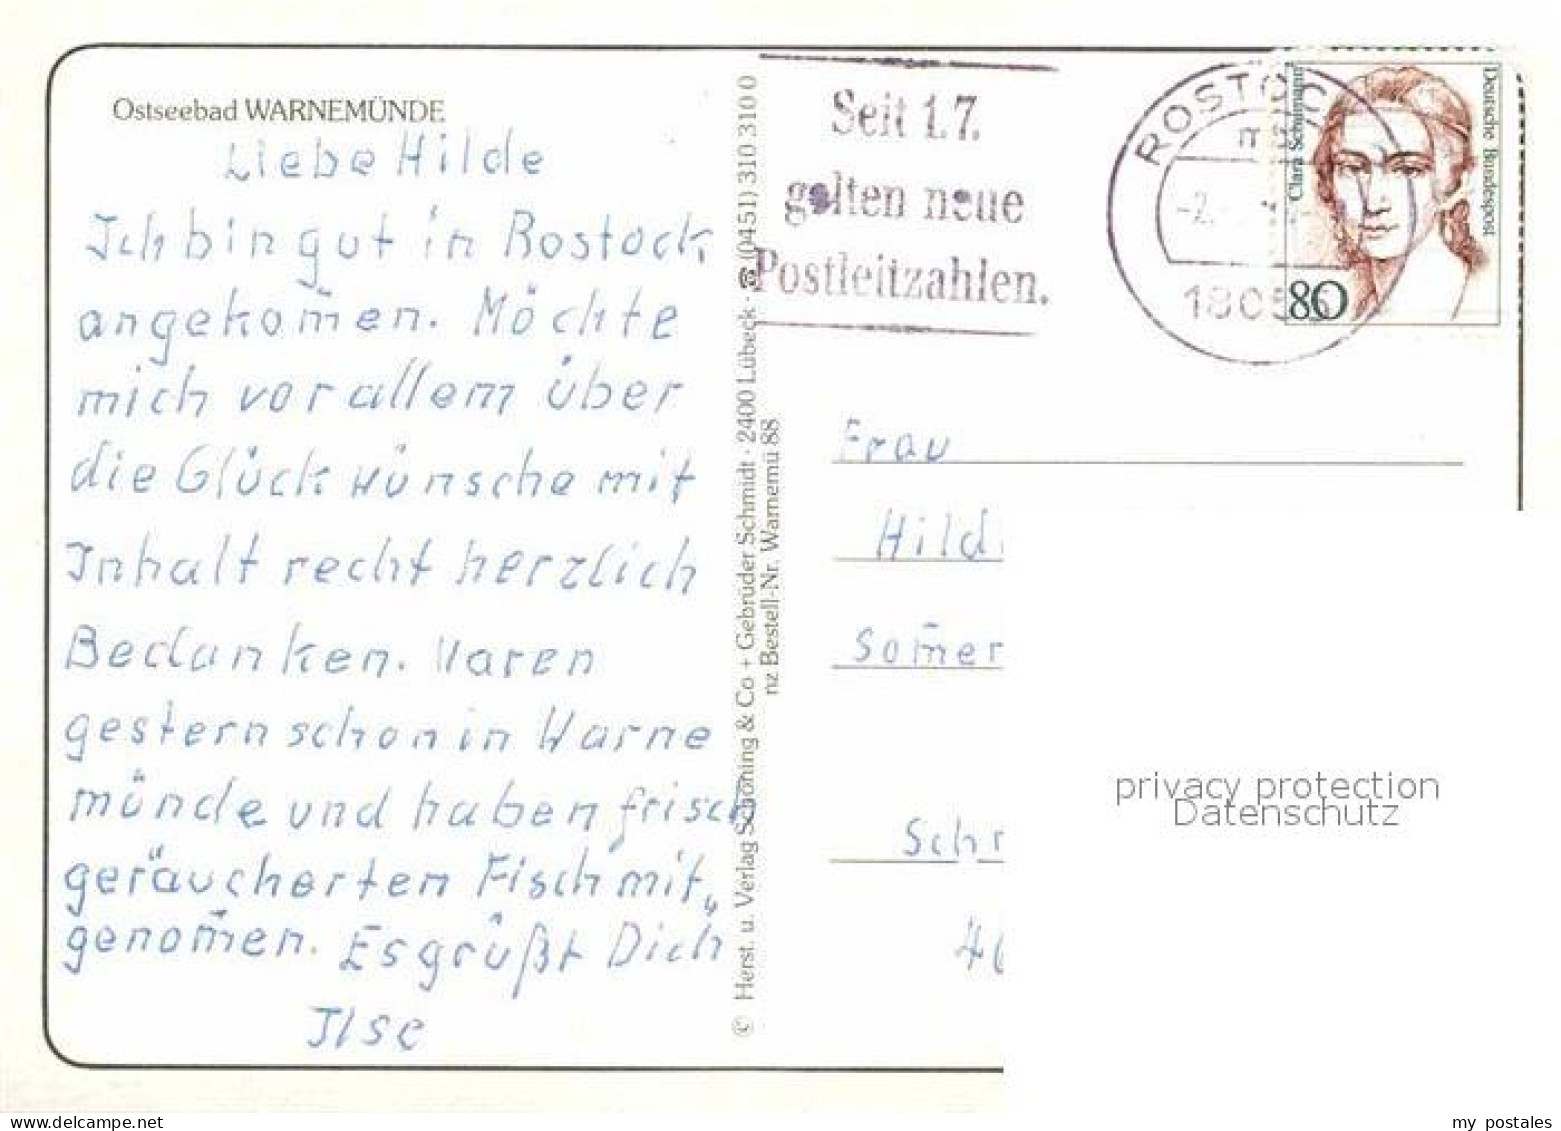 Ostseebad WARNEMÜNDE
Liebe Hilde
Ich bin gut in Rostock
angekom̄en. Möchte
mich vor allem über
die Glückwünsche mit
Inhalt recht herzlich
Bedanken. Waren
gestern schon in Warne
münde und haben frisch
geräucherten Fisch mit„
genom̄en. Es grüßt Dich
Ilse
© Herst. u. Verlag Schöning & Co + Gebrüder Schmidt · 2400 Lübeck · ☎ (0451) 310 310 0
nz Bestell-Nr. Warnemü 88
Seit 1.7.
gelten neue
Postleitzahlen.
ROSTOCK
18055
Clara Schumann
Deutsche Bundespost
80
Frau
Hild
Som̄er
Schr
privacy protection
Datenschutz
my postales